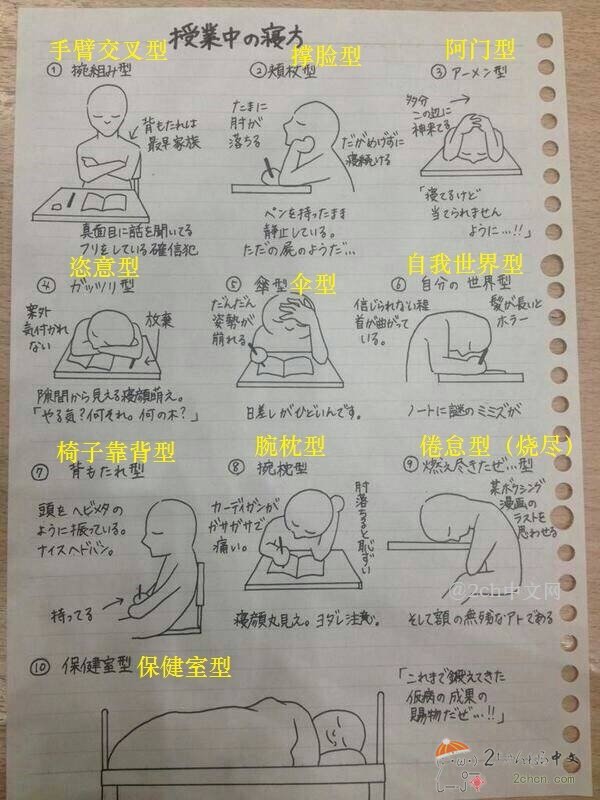 授業中の寝方
手臂交叉型
① 腕組み型
背もたれは
最早家族
真面目に話を聞いてる
フリをしている確信犯
撑脸型
② 頬杖型
たまに
肘が
落ちる
だがめげずに
寝続ける
ペンを持ったまま
静止している。
ただの屍のようだ…
阿门型
③ アーメン型
多分
この辺に
神来てる
「寝てるけど
当てられません
ように…!!」
恣意型
④ ガッツリ型
案外
気付かれ
ない
放棄
隙間から見える寝顔萌え。
「やる気？何それ。何の木？」
⑤ 傘型
伞型
だんだん
姿勢が
崩れる
日差しがひどいんです。
自我世界型
⑥ 自分の世界型
信じられない程
首が曲がって
いる。
髪が長いと
ホラー
ノートに謎のミミズが
椅子靠背型
⑦ 背もたれ型
頭をヘビメタの
ように振っている。
ナイスヘドバン。
持ってる
腕枕型
⑧ 腕枕型
カーディガンが
ガサガサで
痛い。
肘落ちると恥ずい
寝顔丸見え。ヨダレ注意。
倦怠型（烧尽）
⑨ 燃え尽きたぜ…型
某ボクシング
漫画の
ラストを
思わせる
そして額の無残なアトである
⑩ 保健室型
保健室型
「これまで鍛えてきた
仮病の成果の
賜物だぜ…!!」
@2ch中文网
2ちゃんねる中文
2chcn.com